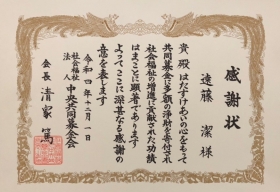 感謝状
遠藤 潔 様
貴殿はたすけあいの心をもって
共同募金に多額の浄財を寄付され
社会福祉の増進に貢献された功績
はまことに顕著であります
よってここに深甚なる感謝の
意を表します
令和四年十二月一日
社会福祉法人 中央共同募金会
会長 清家 篤